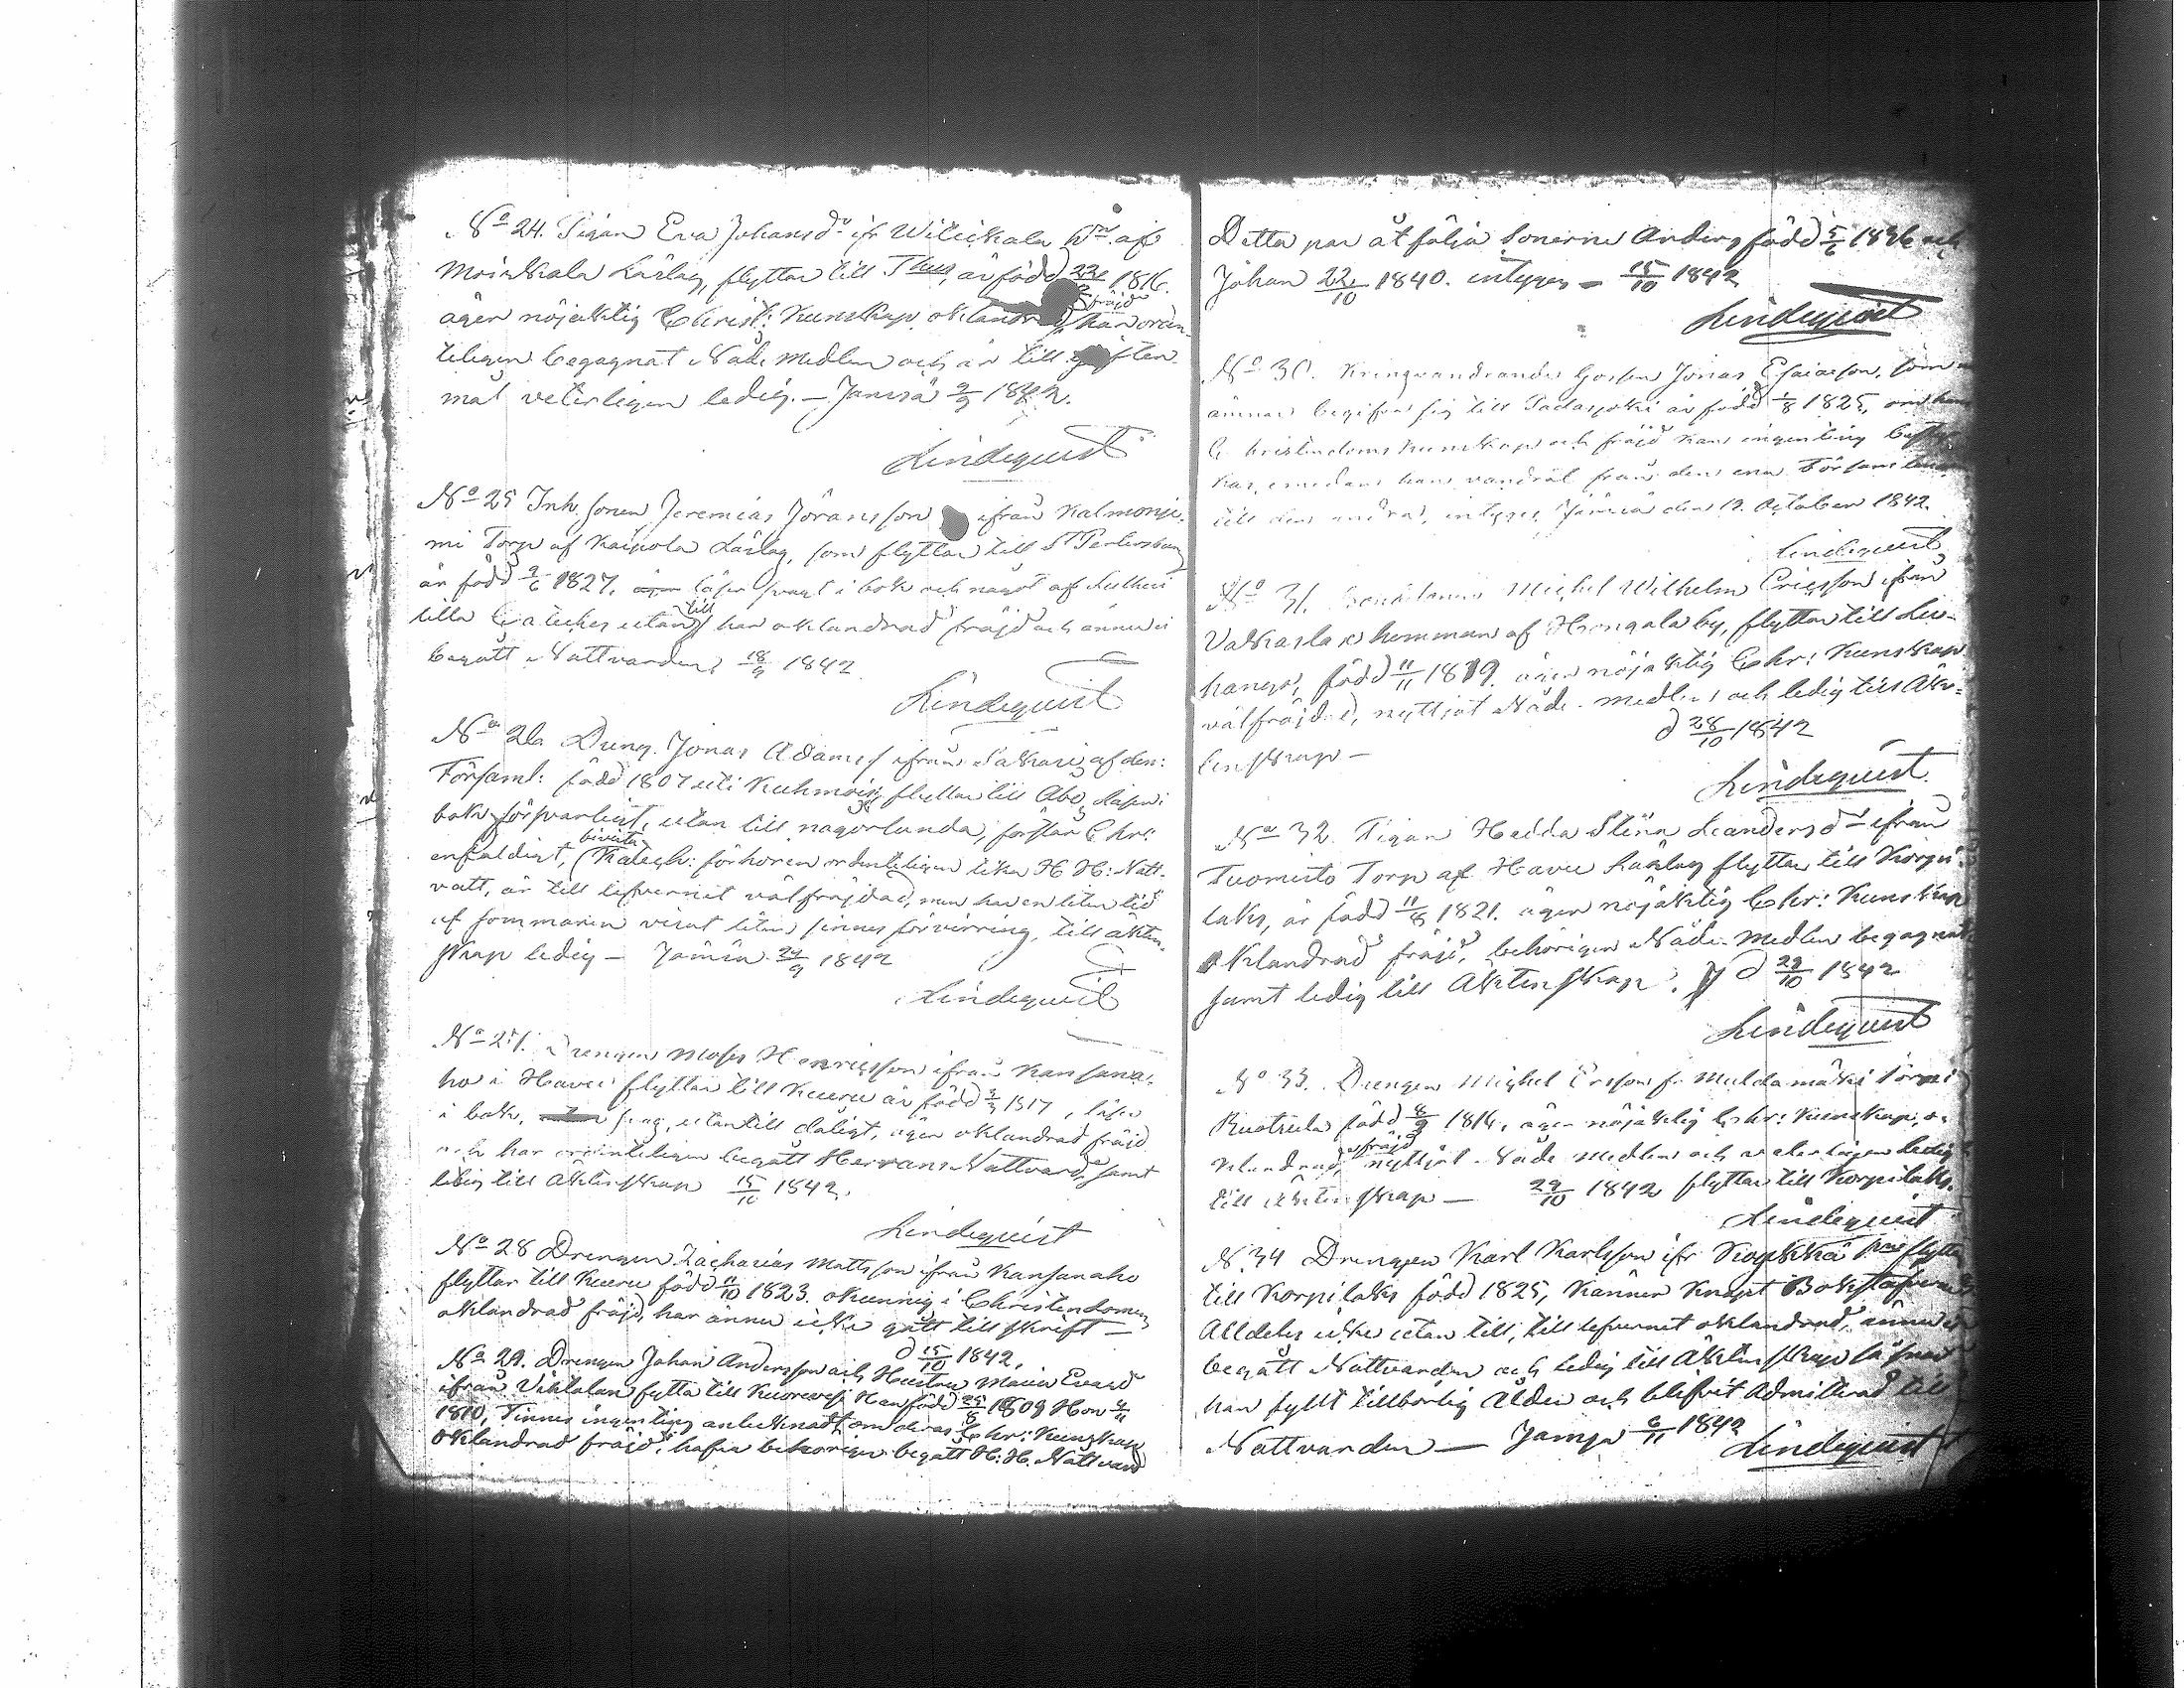 No 24. Pigan Eva Johansdr ifr Wilickala hn af
Moinkala Läslag, flyttar till Thus, är född 22/ 1816.
äger nöjaktig Christ: Kunskap, oklandrad fräjd, har orden
teligen begagnat Nåde medlen och är till giften
mål veterligen ledig. — Jämsä 9/9 1842.
Lindequist
No 25 Inh. sonen Jeremias Jöransson ifrån Kalmonje
mi Torp af Kaipola Läslag, som flyttar till St Petersburg
är född 9/6 1827, läser svagt i bok och något af Lutheri
lilla Cateches utantill har oklandrad fräjd och ännu ei
begått Nattvarden 18/9 1842
Lindequist
No 26 Dreng. Jonas Adamss ifrån Sakari af den:
Församl: född 1807 uti Kuhmois, flyttar till Åbo, läser i
bok försvarligt, utan till någorlunda, förstår Chr:
enfaldigt, bivistat Katech: förhören ordenteligen lika H H: Natt-
vatt, är till lefvernet välfräjdad, men har en liten tid
af sommaren visat liten sinnes förvirring, till äkten-
skap ledig — Jämsä 24/9 1842
Lindequist
No 27. Drengen Moses Henricsson ifrån Kansana-
ho i Havu flyttar till Keuru är född 2/3 1817, läser
i bok, svag, utantill dåligt, äger oklandrad fräjd
och har ordenteligen begått Herrans Nattvard, samt
ledig till Äktenskap 15/10 1842.
Lindequist
No 28 Drengen Zacharias Mattsson ifrån Kansanaho
flyttar till Keuru född 11/10 1823. okunnig i Christendomen
oklandrad fräjd, har ännu icke gått till skrift —
d 15/10 1842.
No 29. Drengen Johan Andersson och Hustrun Maria Evard
ifrån Vihtalan fytta till Kuorevesi Han född 25/8 1809 Hon 4/11
1810, Finnes ingenting anteknatt om deras Chr: Kunskap
oklandrad fräjd, hafva behörigen begått H: H. Nattvard
Detta par åtfölja Sonerne Anders född 5/6 1836 och
Johan 22/10 1840. intygas — 15/10 1842
Lindequist
No 30. Kringvandrande Gossen Jonas Esaiasson, som
ämnar begifva sig till Padasjoki är född 1/8 1825, om hans
Christendoms kunskap och fräjd kan ingenting
kas, emedan han vandrat från den ena Församlin
till den andra, intygas, Jämsä den 19. October 1842.
Lindequist
No 31. Michel Wilhelm Ericsson ifrån
Vakkasla hemman af Hongala by, flyttar till Leu-
hangs, född 11/11 1819. äger nöjaktig Chr: Kunskap
välfräjdad, nyttjat Nåde-medlen och ledig till Äk-
tenskap — d 28/10 1842
Lindequist
No 32. Pigan Hedda Stina Leandersdr ifrån
Tuomisto Torp af Havu Läslag flyttar till Korpi-
laks, är född 11/8 1821. äger nöjaktig Chr: Kunskap
oklandrad fräjd, behörigen Nåde-medlen begagnat
samt ledig till Äktenskap. d 29/10 1842
Lindequist
No 33. Drengen Michel Ersson fr Muldamäki Torp i
Ruotsula född 8/9 1816, äger nöjaktig Chr: Kunskap, o-
klandrad fräjd nyttjat Nåde medlen och veterligen ledig
till Äktenskap — 29/10 1842 flyttar till Korpilaks.
Lindequist
N. 34 Drengen Karl Karlsson ifr flyttar
till Korpilaks född 1825, känner knapt Bokstäfverne
Alldeles icke utan till, till lefvernet oklandrad, ännu ei
begått Nattvarden och ledig till Äktenskap så snart
han fyllt tillbörlig ålder och blifvit Admitterad till
Nattvarden — Jämsä 6/11 1842
Lindequist